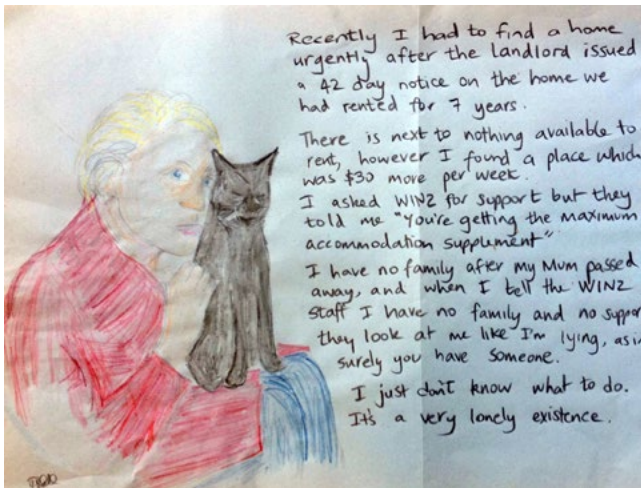 Recently I had to find a home
urgently after the landlord issued
a 42 day notice on the home we
had rented for 7 years.
There is next to nothing available to
rent, however I found a place which
was $30 more per week.
I asked WINZ for support but they
told me "You're getting the maximum
accommodation supplement"
I have no family after my Mum passed
away, and when I tell the WINZ
staff I have no family and no suppor
they look at me like I'm lying, as i
surely you have someone.
I just don't know what to do.
It's a very lonely existence.